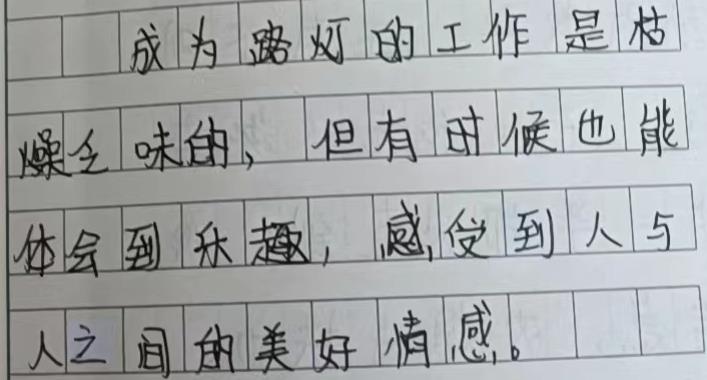 成为路灯的工作是枯
燥乏味的，但有时候也能
体会到乐趣，感受到人与
人之间的美好情感。